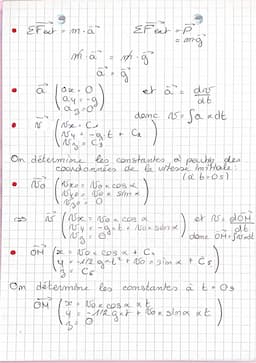 • ΣFext = m·a    ΣFext = P
= mg
m·a = m·g
a = g
• a (ax = 0
ay = -g    et a = dv/dt
az = 0)
donc v = ∫a×dt
• v (vx = C1
vy = -g·t + C2
vz = C3)
On détermine les constantes à partir des
coordonnées de la vitesse initiale.
(à t=0s)
• v0 (vx0 = v0 × cos α
vy0 = v0 × sin α
vz0 = 0)
⇔ v (vx = v0 × cos α
vy = -g×t + v0 × sin α    et v = dOM/dt
vz = 0)    donc OM = ∫v×dt
• OM (x = v0 × cos α + C4
y = -1/2 g×t² + v0 × sin α + C5
z = C6)
On détermine les constantes à t = 0s
OM (x = v0 × cos α × t
y = -1/2 g×t + v0 × sin α × t
z = 0)